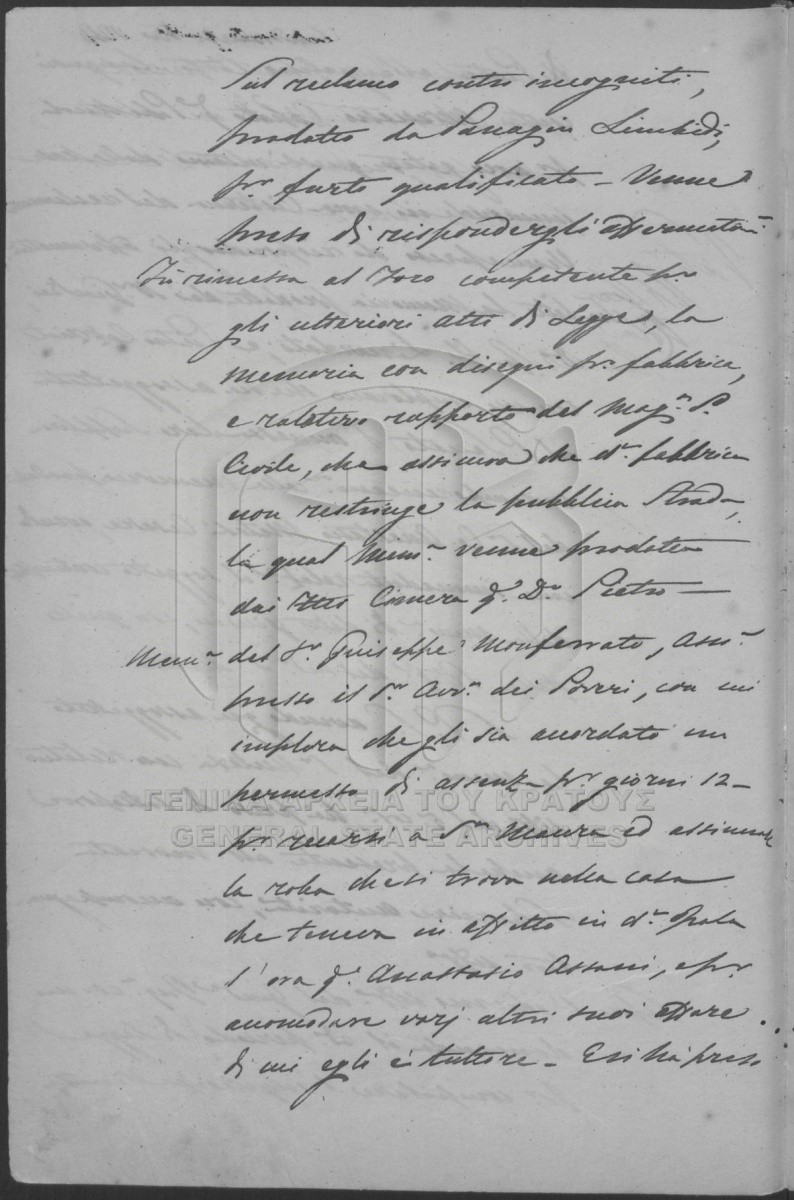 Sul reclamo contro incogniti,
prodotto da Panagin
pr. furto qualificato – Venne
preso di rispondergli affermatam.
Fù rimessa al Foro competente pr.
gli ulteriori atti di Legge, la
memoria con disegni pr. fabbrica,
e relativo rapporto del Mag.n P.
Civile, che assicura che d.a fabbrica
non restringe la pubblica Strada,
la qual Mem.a venne prodotta
dai q.m D.n Pietro —
Mem.a del S.r Giuseppe Monferrato, Ass.
presso il S.r Avv.o dei Poveri, con cui
implora che gli sia accordato un
permesso di assenza pr. giorni 12 –
pr. recarsi a S.a Maura ed assicurare
la roba che si trova nella casa
che teneva in affitto in d.a Isola
l'ora q.m Anastasio Assani, e pr.
accomodare varj altri suoi affare
di cui egli è tuttore – Essi hà preso
ΓΕΝΙΚΑ ΑΡΧΕΙΑ ΤΟΥ ΚΡΑΤΟΥΣ
GENERAL STATE ARCHIVES